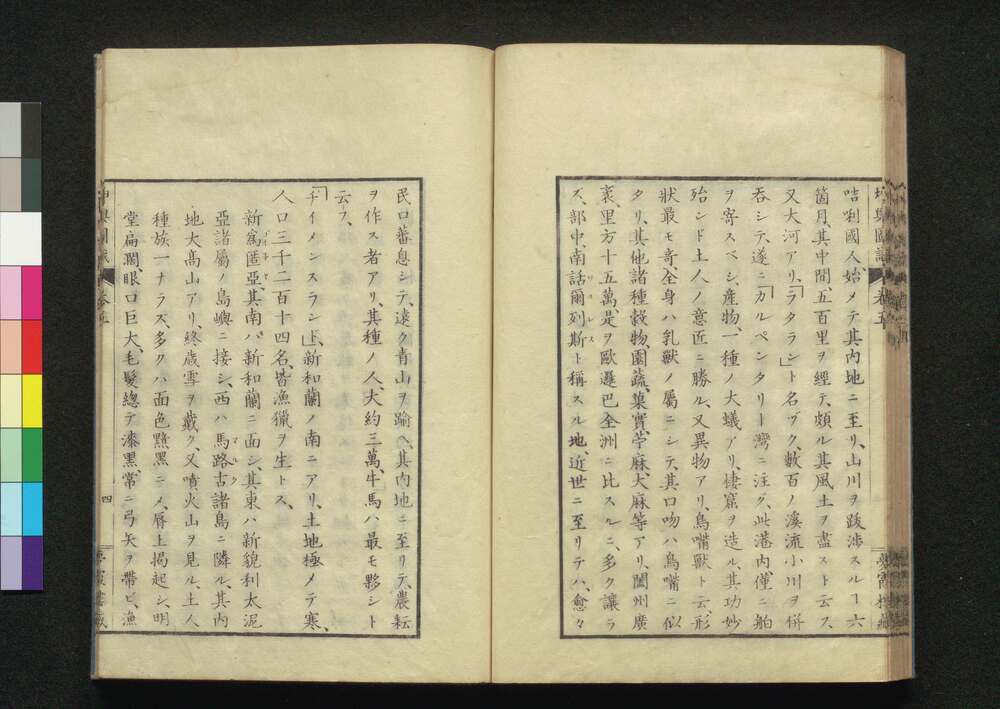 坤輿圖識 卷五
咭唎國人始メテ其内地ニ至リ、山川ヲ跋渉スルヿ六
箇月、其中間、五百里ヲ經テ、頗ル其風土ヲ盡スト云フ、
又大河アリ、「ラタラン」ト名ヅク、數百ノ溪流小川ヲ併
呑シテ、遂ニ「カルペンタリー」灣ニ注グ、此港内、僅ニ舶
ヲ寄スベシ、産物、一種ノ大蟻アリ、棲窟ヲ造ル、其功妙
殆シド土人ノ意匠ニ勝ル、又異物アリ、鳥嘴獸ト云、形
狀最モ奇、全身ハ乳獸ノ屬ニシテ、其口吻ハ鳥嘴ニ似
タリ、其他諸種穀物、園蔬、菓實、苧麻、大麻等アリ、闔州廣
袤、里方十五萬、是ヲ歐邏巴全洲ニ比スルニ、多ク讓ラ
ズ、部中、南話爾列斯ト稱スル地、近世ニ至リテハ、愈々
民口蕃息シテ、遠ク青山ヲ踰ヘ、其内地ニ至リテ、農耘
ヲ作ス者アリ、其種ノ人、大約三萬、牛馬ハ最モ夥シト
云フ、
「チイメンスランド」、新和蘭ノ南ニアリ、土地極メテ寒、
人口三千二百十四名、皆漁獵ヲ生トス、
新爲匿亞、其南ハ新和蘭ニ面シ、其東ハ新貌利太泥
亞諸屬ノ島嶼ニ接シ、西ハ馬路古諸島ニ隣ル、其内
地大高山アリ、終歳雪ヲ戴ク、又噴火山ヲ見ル、土人
種族一ナラズ、多クハ面色黧黑ニメ、脣上掲起シ、明
堂扁濶、眼口巨大、毛髮總テ漆黑、常ニ弓矢ヲ帶ビ、漁
坤輿圖識 卷五 四